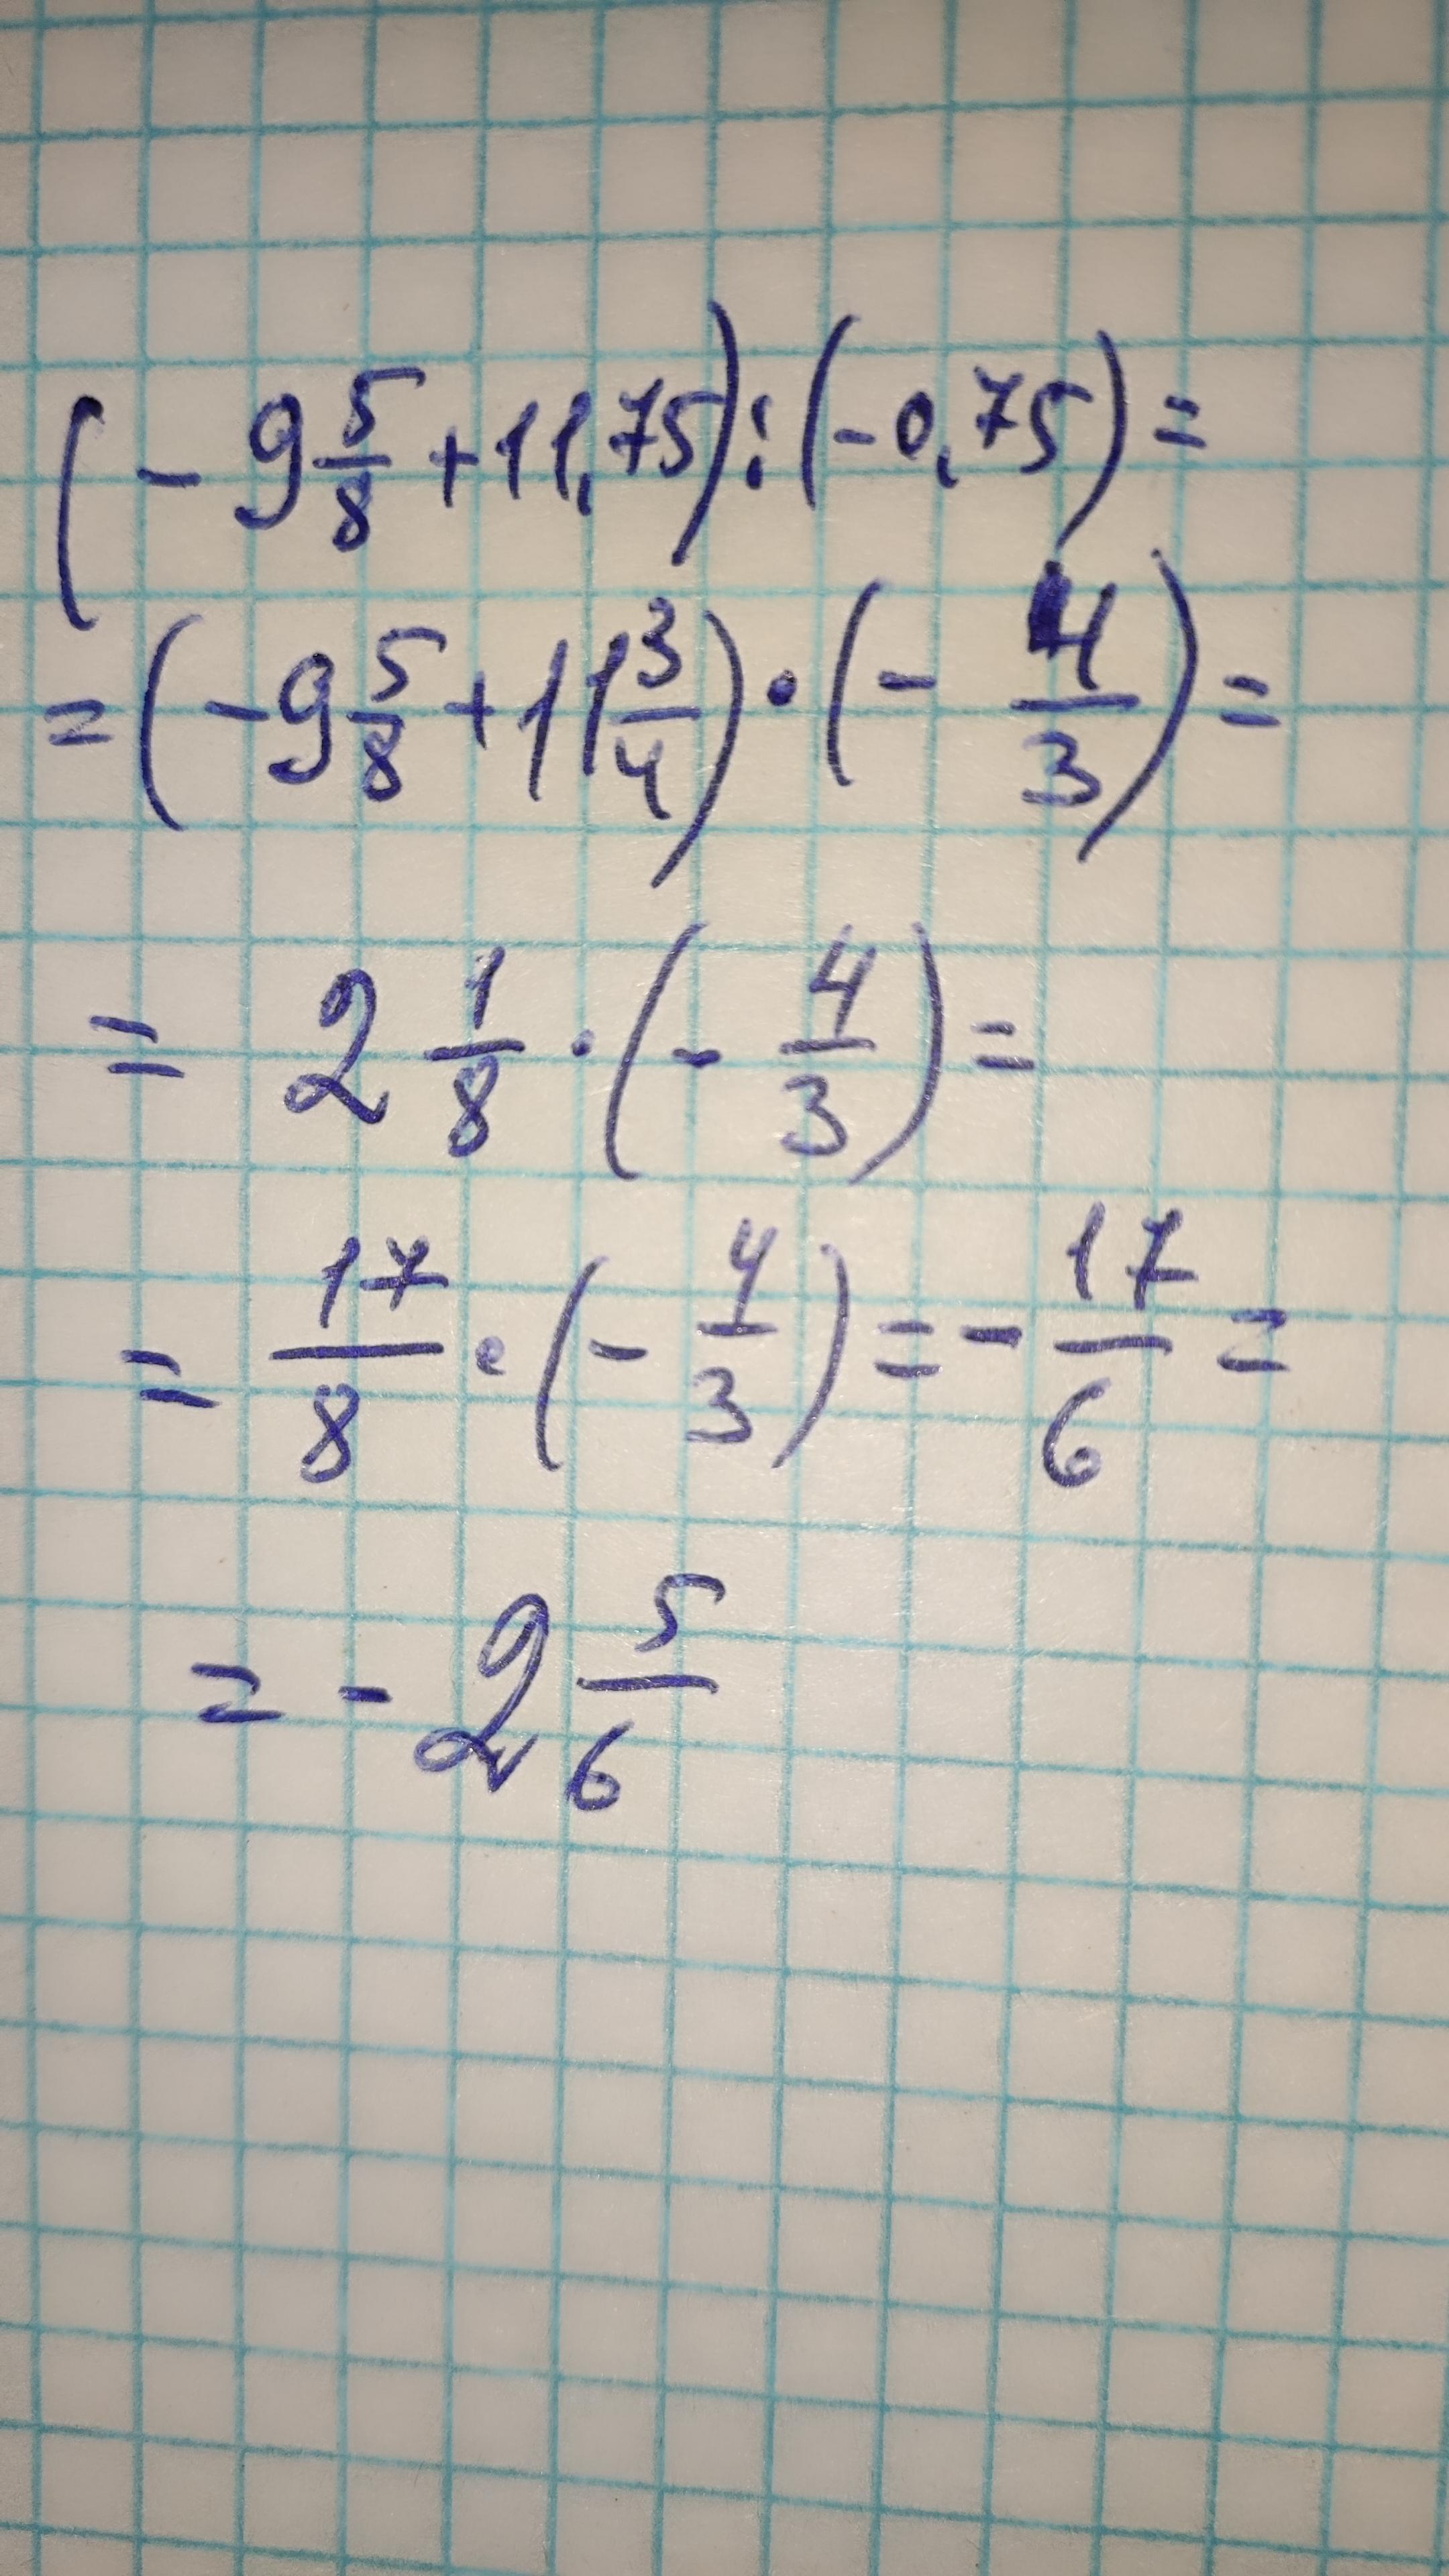 (- 9 5/8 + 11,75) : (- 0,75) =
= (- 9 5/8 + 11 3/4) · (- 4/3) =
= 2 1/8 · (- 4/3) =
= 17/8 · (- 4/3) = - 17/6 =
= - 2 5/6